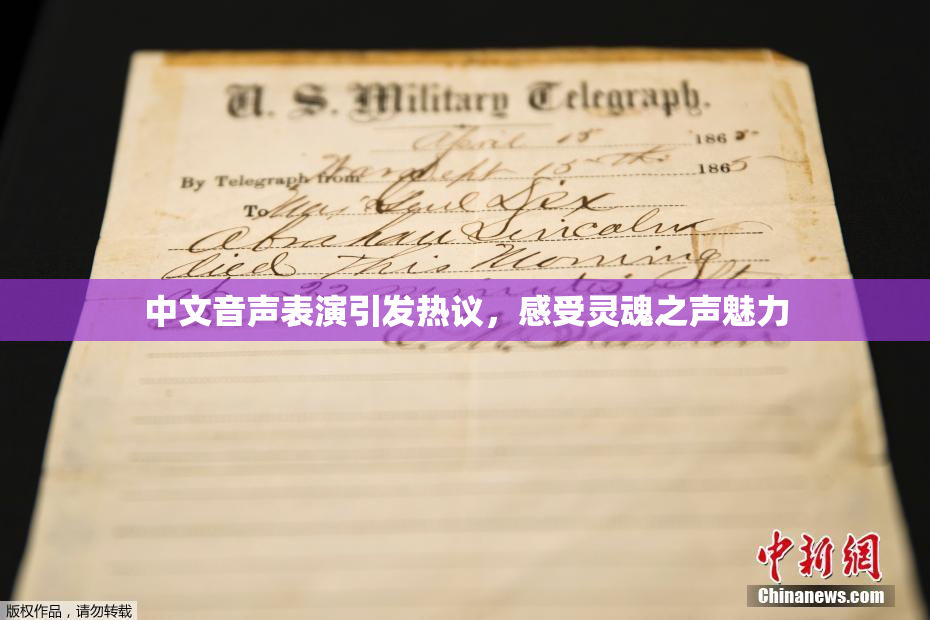 U. S. Military Telegraph.
April 15 1865
By Telegraph from War Dept 15th 1865
To Maj Genl Dix
Abraham Lincoln
died This Morning
at 22 minutes after
中文音声表演引发热议，感受灵魂之声魅力
中新网
Chinanews.com
版权作品，请勿转载